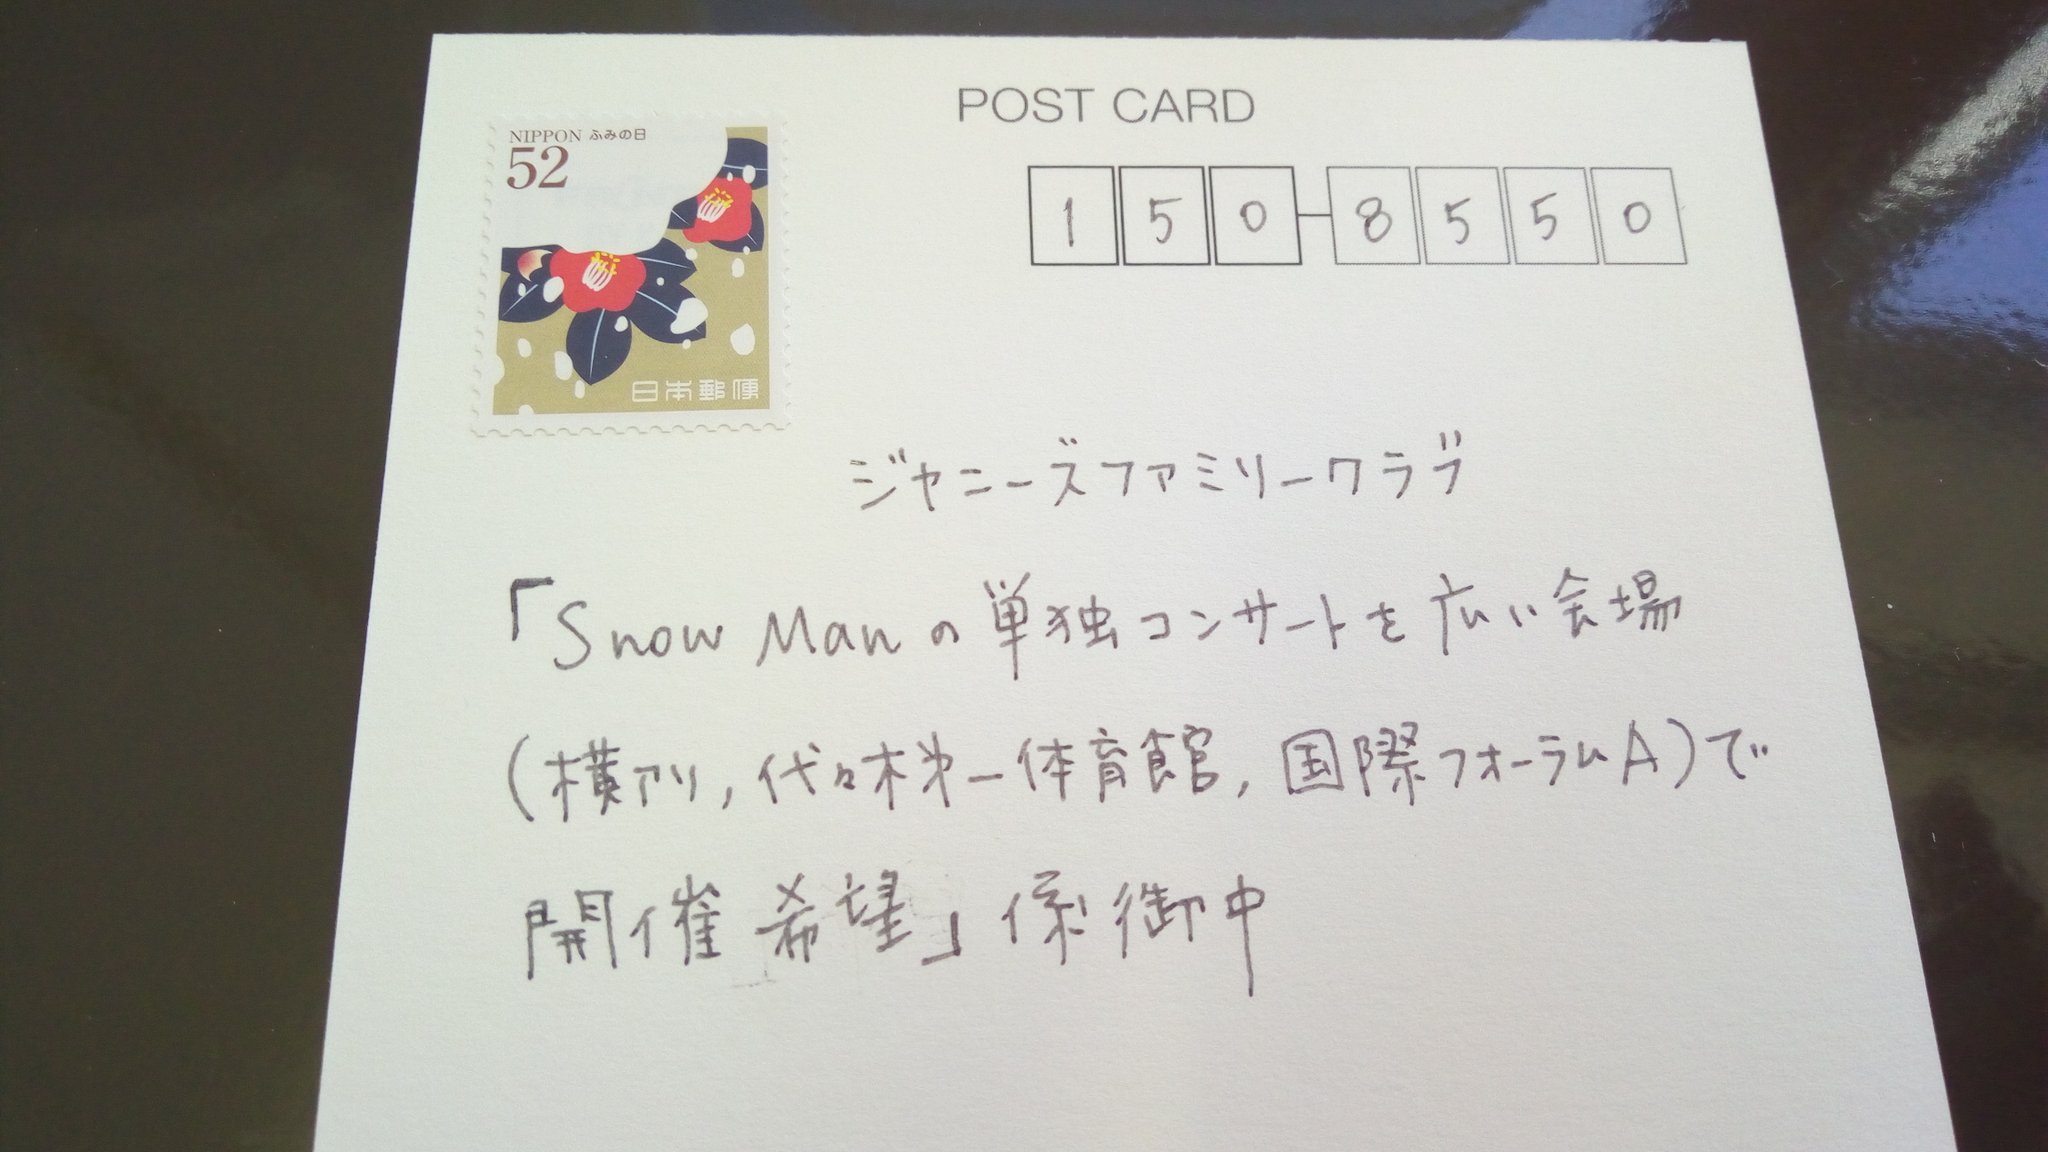 POST CARD
NIPPON ふみの日
52
日本郵便
150-8550
ジャニーズファミリークラブ
「Snow Manの単独コンサートを広い会場
(横アリ, 代々木第一体育館, 国際フォーラムA)で
開催希望」係御中